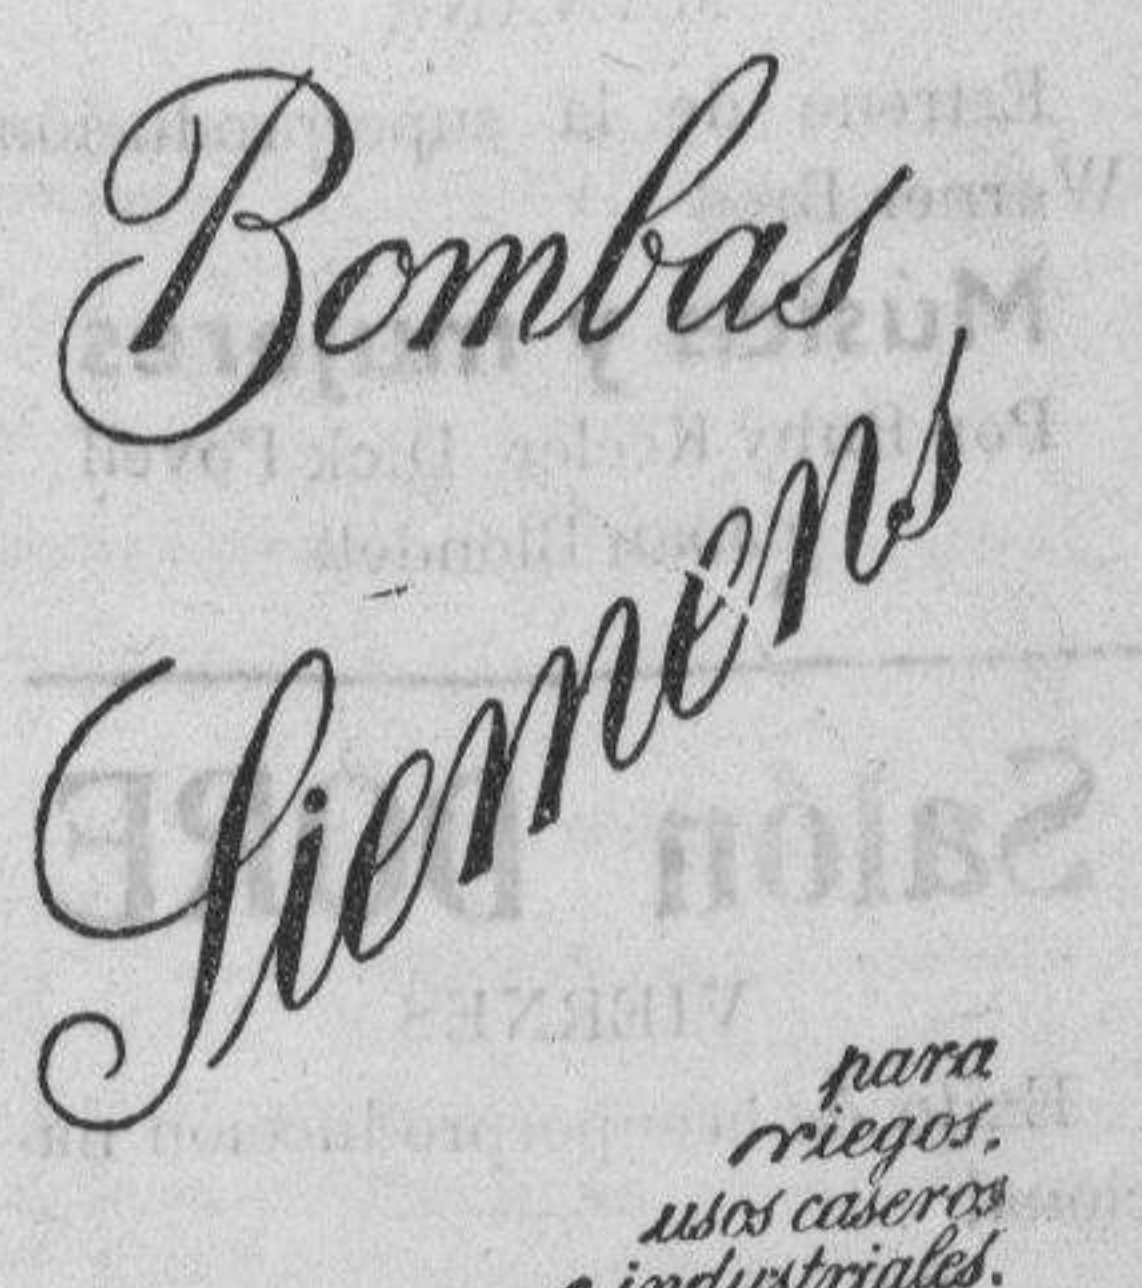 Bombas
Siemens
para
riegos,
usos caseros
e industriales.